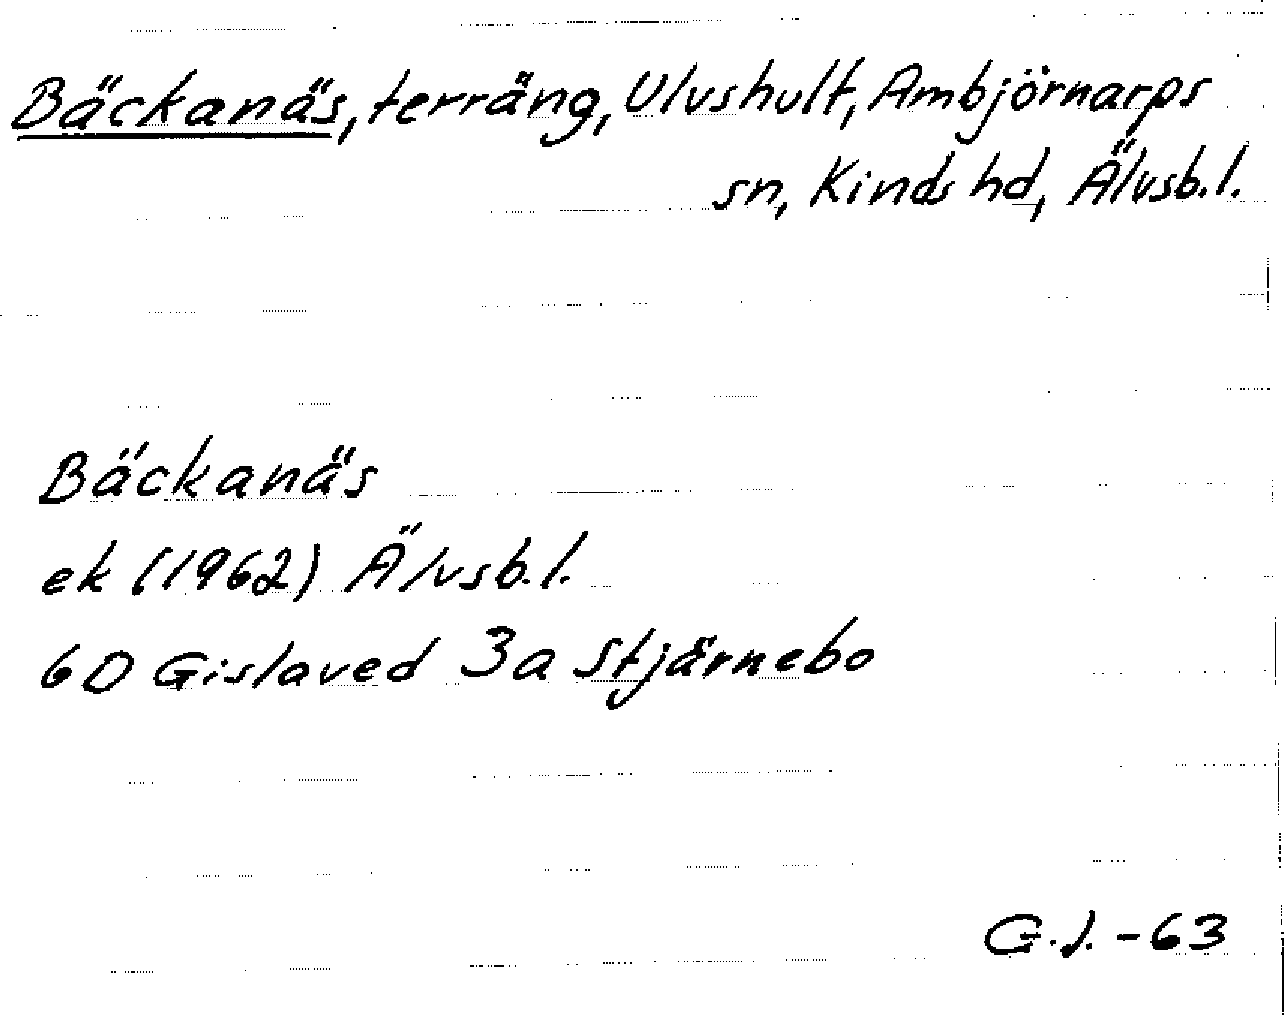 Bäckanäs, terräng, Ulvshult, Ambjörnarps
sn, Kinds hd, Älvsb.l.
Bäckanäs
ek (1962) Älvsb.l.
6D Gislaved 3a Stjärnebo
G.J. -63